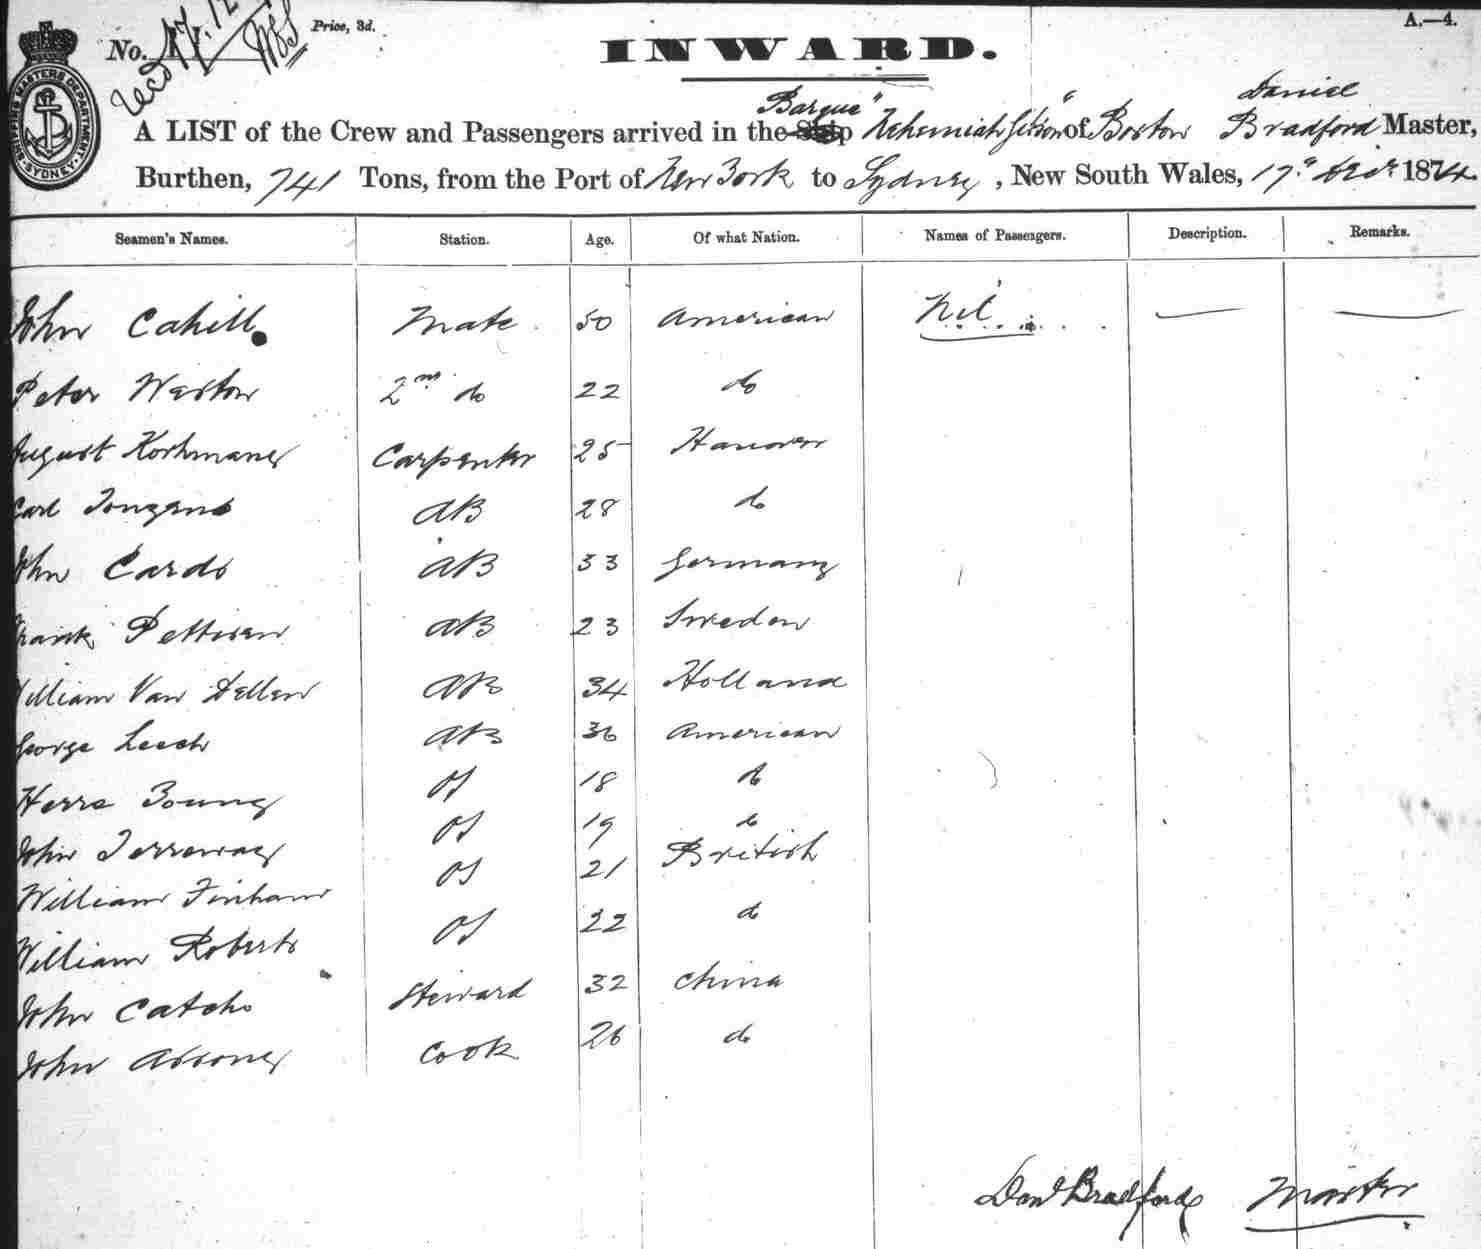 No. Price, 3d. A.—4.
INWARD.
Barque Daniel
A LIST of the Crew and Passengers arrived in the Ship "Nehemiah Gibson" of Boston Bradford Master,
Burthen, 741 Tons, from the Port of New York to Sydney, New South Wales, 17th Decr 1874
SHIPPING MASTERS DEPARTMENT SYDNEY
Seamen's Names. Station. Age. Of what Nation. Names of Passengers. Description. Remarks.
John Cahill Mate 50 American Nil — —
Peter Weston 2nd do 22 do
August Carpenter 25 Hanover
Carl AB 28 do
John Cards AB 33 Germany
Frank AB 23 Sweden
William Van Dellen AB 34 Holland
George Leech AB 36 American
Young OS 18 do
John OS 19 do
William OS 21 British
William Roberts OS 22 do
John Catcho Steward 32 China
John Cook 26 do
Danl Bradford Master